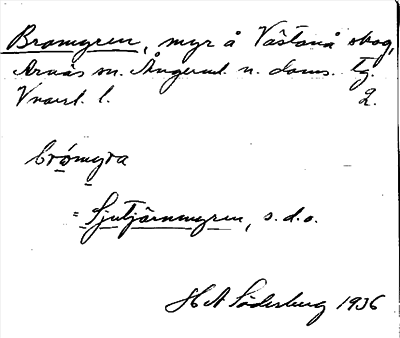 Bromyren, myr å Västanå skog,
Arnäs sn. Ångerml. n. doms. Tg.
Vvarl. l. 2.
brómyra
= Sjutjärnmyren, s.d.o.
H A Söderberg 1936